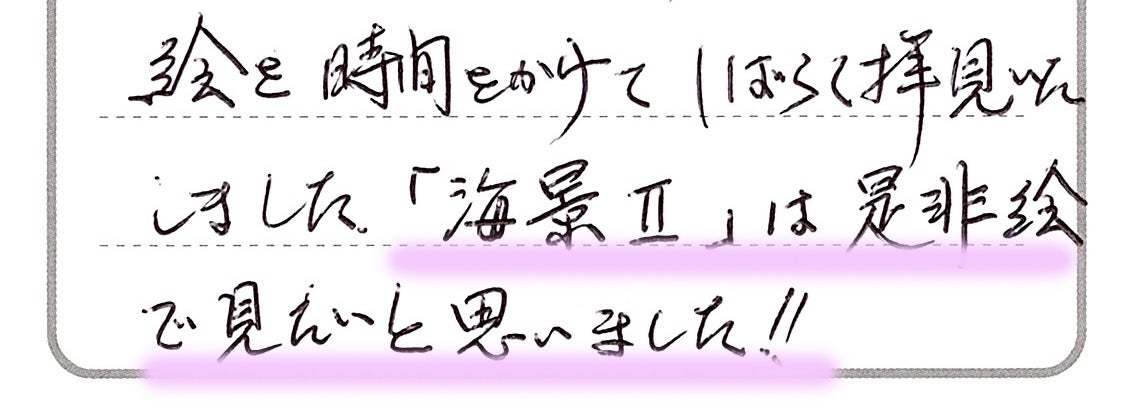 絵を時間をかけてしばらく拝見いた
しました。「海景Ⅱ」は是非絵
で見たいと思いました!!